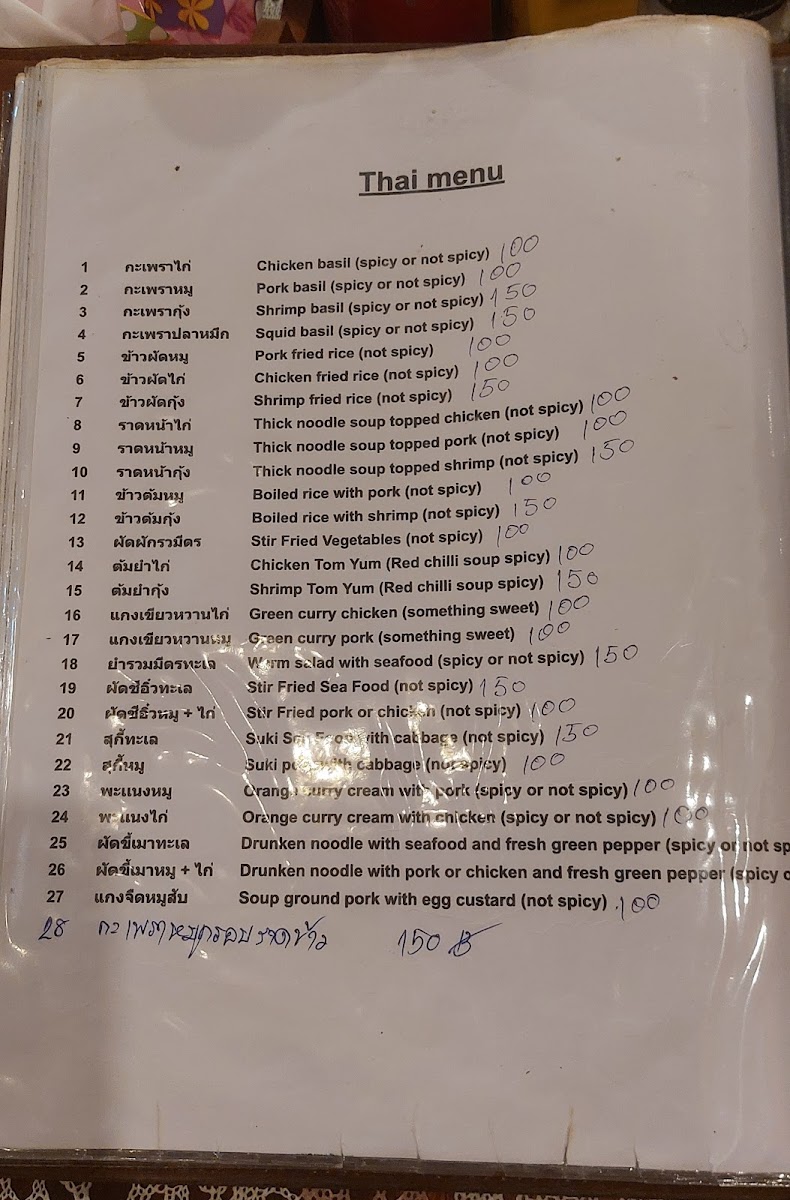 Thai menu
1 กะเพราไก่ Chicken basil (spicy or not spicy) 100
2 กะเพราหมู Pork basil (spicy or not spicy) 100
3 กะเพรากุ้ง Shrimp basil (spicy or not spicy) 150
4 กะเพราปลาหมึก Squid basil (spicy or not spicy) 150
5 ข้าวผัดหมู Pork fried rice (not spicy) 100
6 ข้าวผัดไก่ Chicken fried rice (not spicy) 100
7 ข้าวผัดกุ้ง Shrimp fried rice (not spicy) 150
8 ราดหน้าไก่ Thick noodle soup topped chicken (not spicy) 100
9 ราดหน้าหมู Thick noodle soup topped pork (not spicy) 100
10 ราดหน้ากุ้ง Thick noodle soup topped shrimp (not spicy) 150
11 ข้าวต้มหมู Boiled rice with pork (not spicy) 100
12 ข้าวต้มกุ้ง Boiled rice with shrimp (not spicy) 150
13 ผัดผักรวมิตร Stir Fried Vegetables (not spicy) 100
14 ต้มยำไก่ Chicken Tom Yum (Red chilli soup spicy) 100
15 ต้มยำกุ้ง Shrimp Tom Yum (Red chilli soup spicy) 150
16 แกงเขียวหวานไก่ Green curry chicken (something sweet) 100
17 แกงเขียวหวานหมู Green curry pork (something sweet) 100
18 ยำรวมมิตรทะเล Warm salad with seafood (spicy or not spicy) 150
19 ผัดซีอิ๋วทะเล Stir Fried Sea Food (not spicy) 150
20 ผัดซีอิ๋วหมู + ไก่ Stir Fried pork or chicken (not spicy) 100
21 สุกี้ทะเล Suki Sea Food with cabbage (not spicy) 150
22 สุกี้หมู Suki pork with cabbage (not spicy) 100
23 พะแนงหมู Orange curry cream with pork (spicy or not spicy) 100
24 พะแนงไก่ Orange curry cream with chicken (spicy or not spicy) 100
25 ผัดขี้เมาทะเล Drunken noodle with seafood and fresh green pepper (spicy or not sp
26 ผัดขี้เมาหมู + ไก่ Drunken noodle with pork or chicken and fresh green pepper (spicy o
27 แกงจืดหมูสับ Soup ground pork with egg custard (not spicy) 100
28 กะเพราหมูกรอบราดข้าว 150 ฿